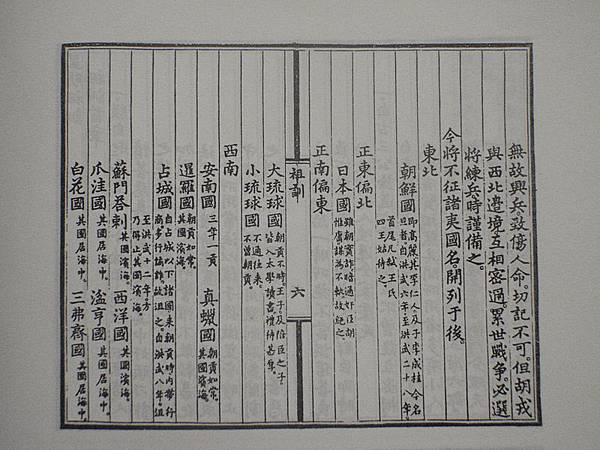 無故興兵致傷人命。切記不可。但胡戎
與西北邊境互相密邇。累世戰爭。必選
將練兵時謹備之。
今將不征諸夷國名開列于後。
東北
朝鮮國
即高麗其李仁人及子李成桂今名
旦者自洪武六年至洪武二十八年
首尾凡弒王氏
四王姑待之。
正東偏北
日本國
雖朝實詐暗通奸臣胡
惟庸謀為不軌故絕之
正南偏東
祖訓
六
大琉球國
朝貢不時王子及陪臣之子
皆入太學讀書禮待甚厚。
小琉球國
不通往來。
不曾朝貢。
西南
安南國 三年一貢
真蠟國
朝貢如常。
其國濱海。
暹羅國
朝貢如常。
其國濱海。
占城國
自占城以下諸國來朝貢時內帶行
商多行譎詐。故沮之。自洪武八年沮
至洪武十二年方
乃得止其國濱海。
蘇門荅剌 其國濱海。
西洋國 其國濱海。
爪洼國 其國居海中。
湓亨國 其國居海中。
白花國 其國居海中。
三弗齊國 其國居海中。